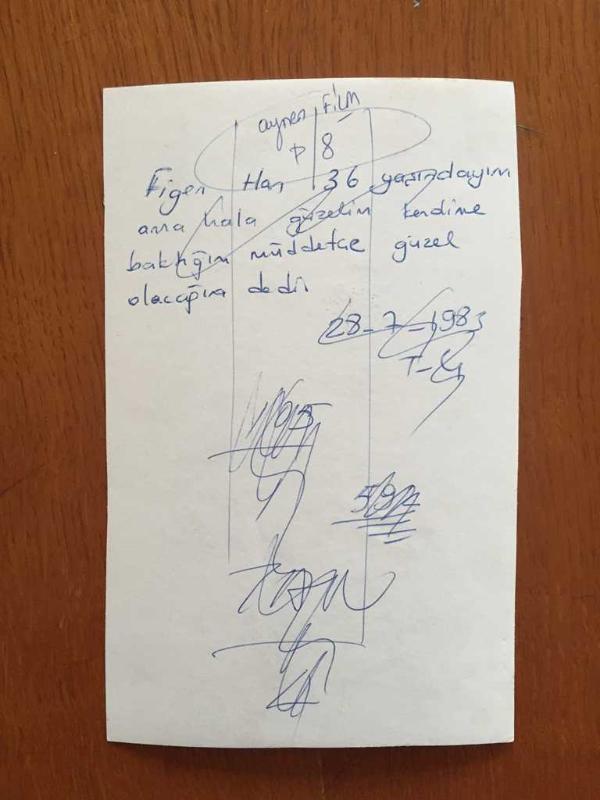 aynen FİLM
8
Figen Han 36 yaşındayım
ama hala güzelim kendime
baktığım müddetce güzel
olacağım dedi
28-7-1983